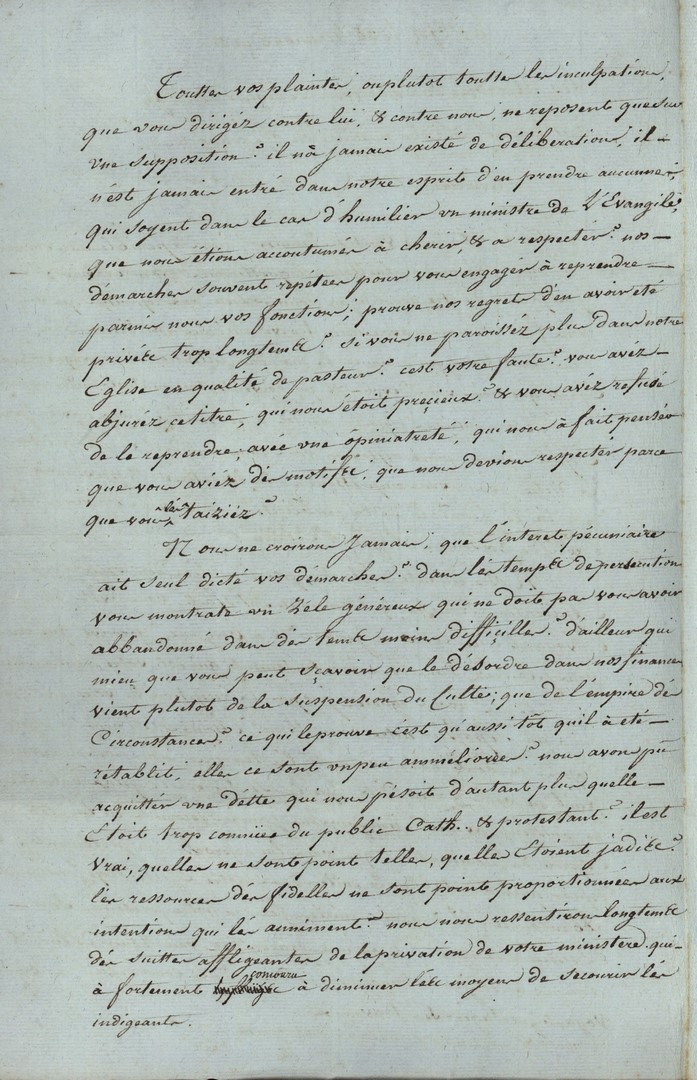 Touttes vos plaintes, ou plutot touttes les inculpations,
que vous dirigéz contre lui, & contre nous, ne reposent que sur
une supposition. il n'à jamais existé de déliberation, il
n'est jamais entré dans notre esprit d'en prendre aucunnes,
qui soyent dans le cas d'humilier un ministre de L'Evangile,
que nous étions accoutumés à cherir, & a respectér. nos
démarches souvent repétées pour vous engagér à reprendre
parmis nous vos fonctions, prouve nos regrets d'en avoir été
privées trop longtems. si vous ne paroissèz plus dans notre
Eglise en qualité de pasteur. cest votre faute. vous avéz
abjuréz ce titre, qui nous étoit preçieux. & vous avéz refusé
de le reprendre avéc une opiniatreté, qui nous à fait pensér
que vous aviéz dés motifs, que nous devions respectér parce
que vous lés taiziéz.
Nous ne croirons Jamais, que l'interet pécuniaire
ait seul dicté vos démarches. dans lés temps de persecution
vous montrate un Zéle généreux qui ne doit pas vous avoir
abbandonné dans dés temps moins difficilles. d'ailleurs qui
mieu que vous peut sçavoir que le désordre dans nos finances
vient plutot de la suspension du Culte, que de l'émpire dés
Circonstances. ce qui le prouve c'est qu'aussi tôt quil à eté
rétablit, elles ce sont un peu ammeliorées. nous avons pû
acquittér une détte qui nous pésoit d'autant plus quelle
Etoit trop connüe du public Cath. & protestant. il est
vrai, quelles ne sont point telles, quelles Etoient jadis.
lés ressources dés fidelles ne sont point proportionnées aux
intentions qui lés anniment. nous nous ressentirons longtems
dés suittes affligeantes de la privation de votre ministére qui
à fortement concouru à diminuer lés moyens de secourir lés
indigeants.